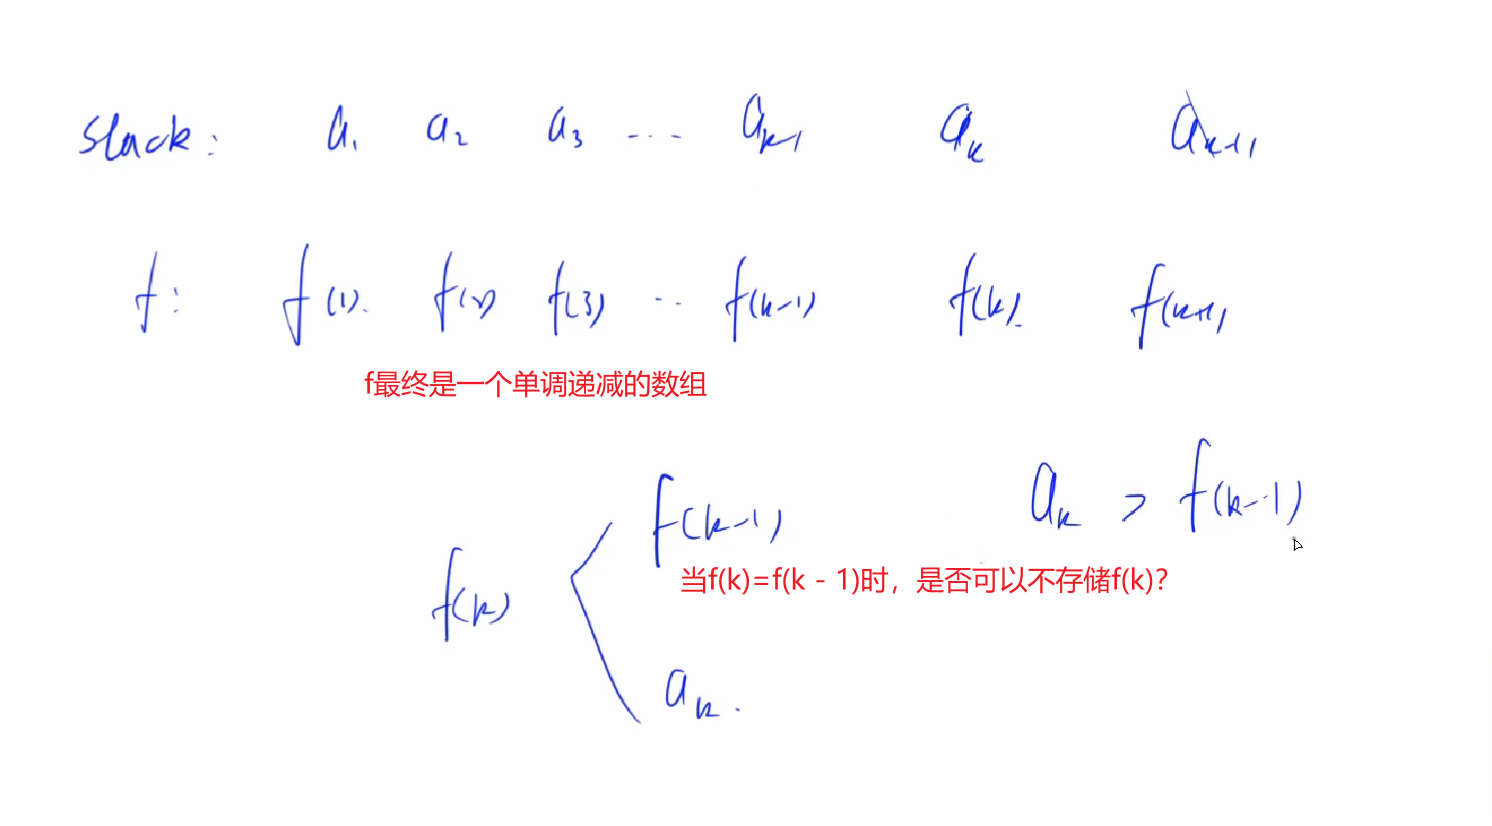 Stack: a₁ a₂ a₃ ... aₖ₋₁ aₖ aₖ₊₁
f: f(1). f(2) f(3) .. f(k-1) f(k). f(k+1)
f最终是一个单调递减的数组
f(k-1) aₖ > f(k-1)
当f(k)=f(k - 1)时，是否可以不存储f(k)?
f(k)
aₖ.